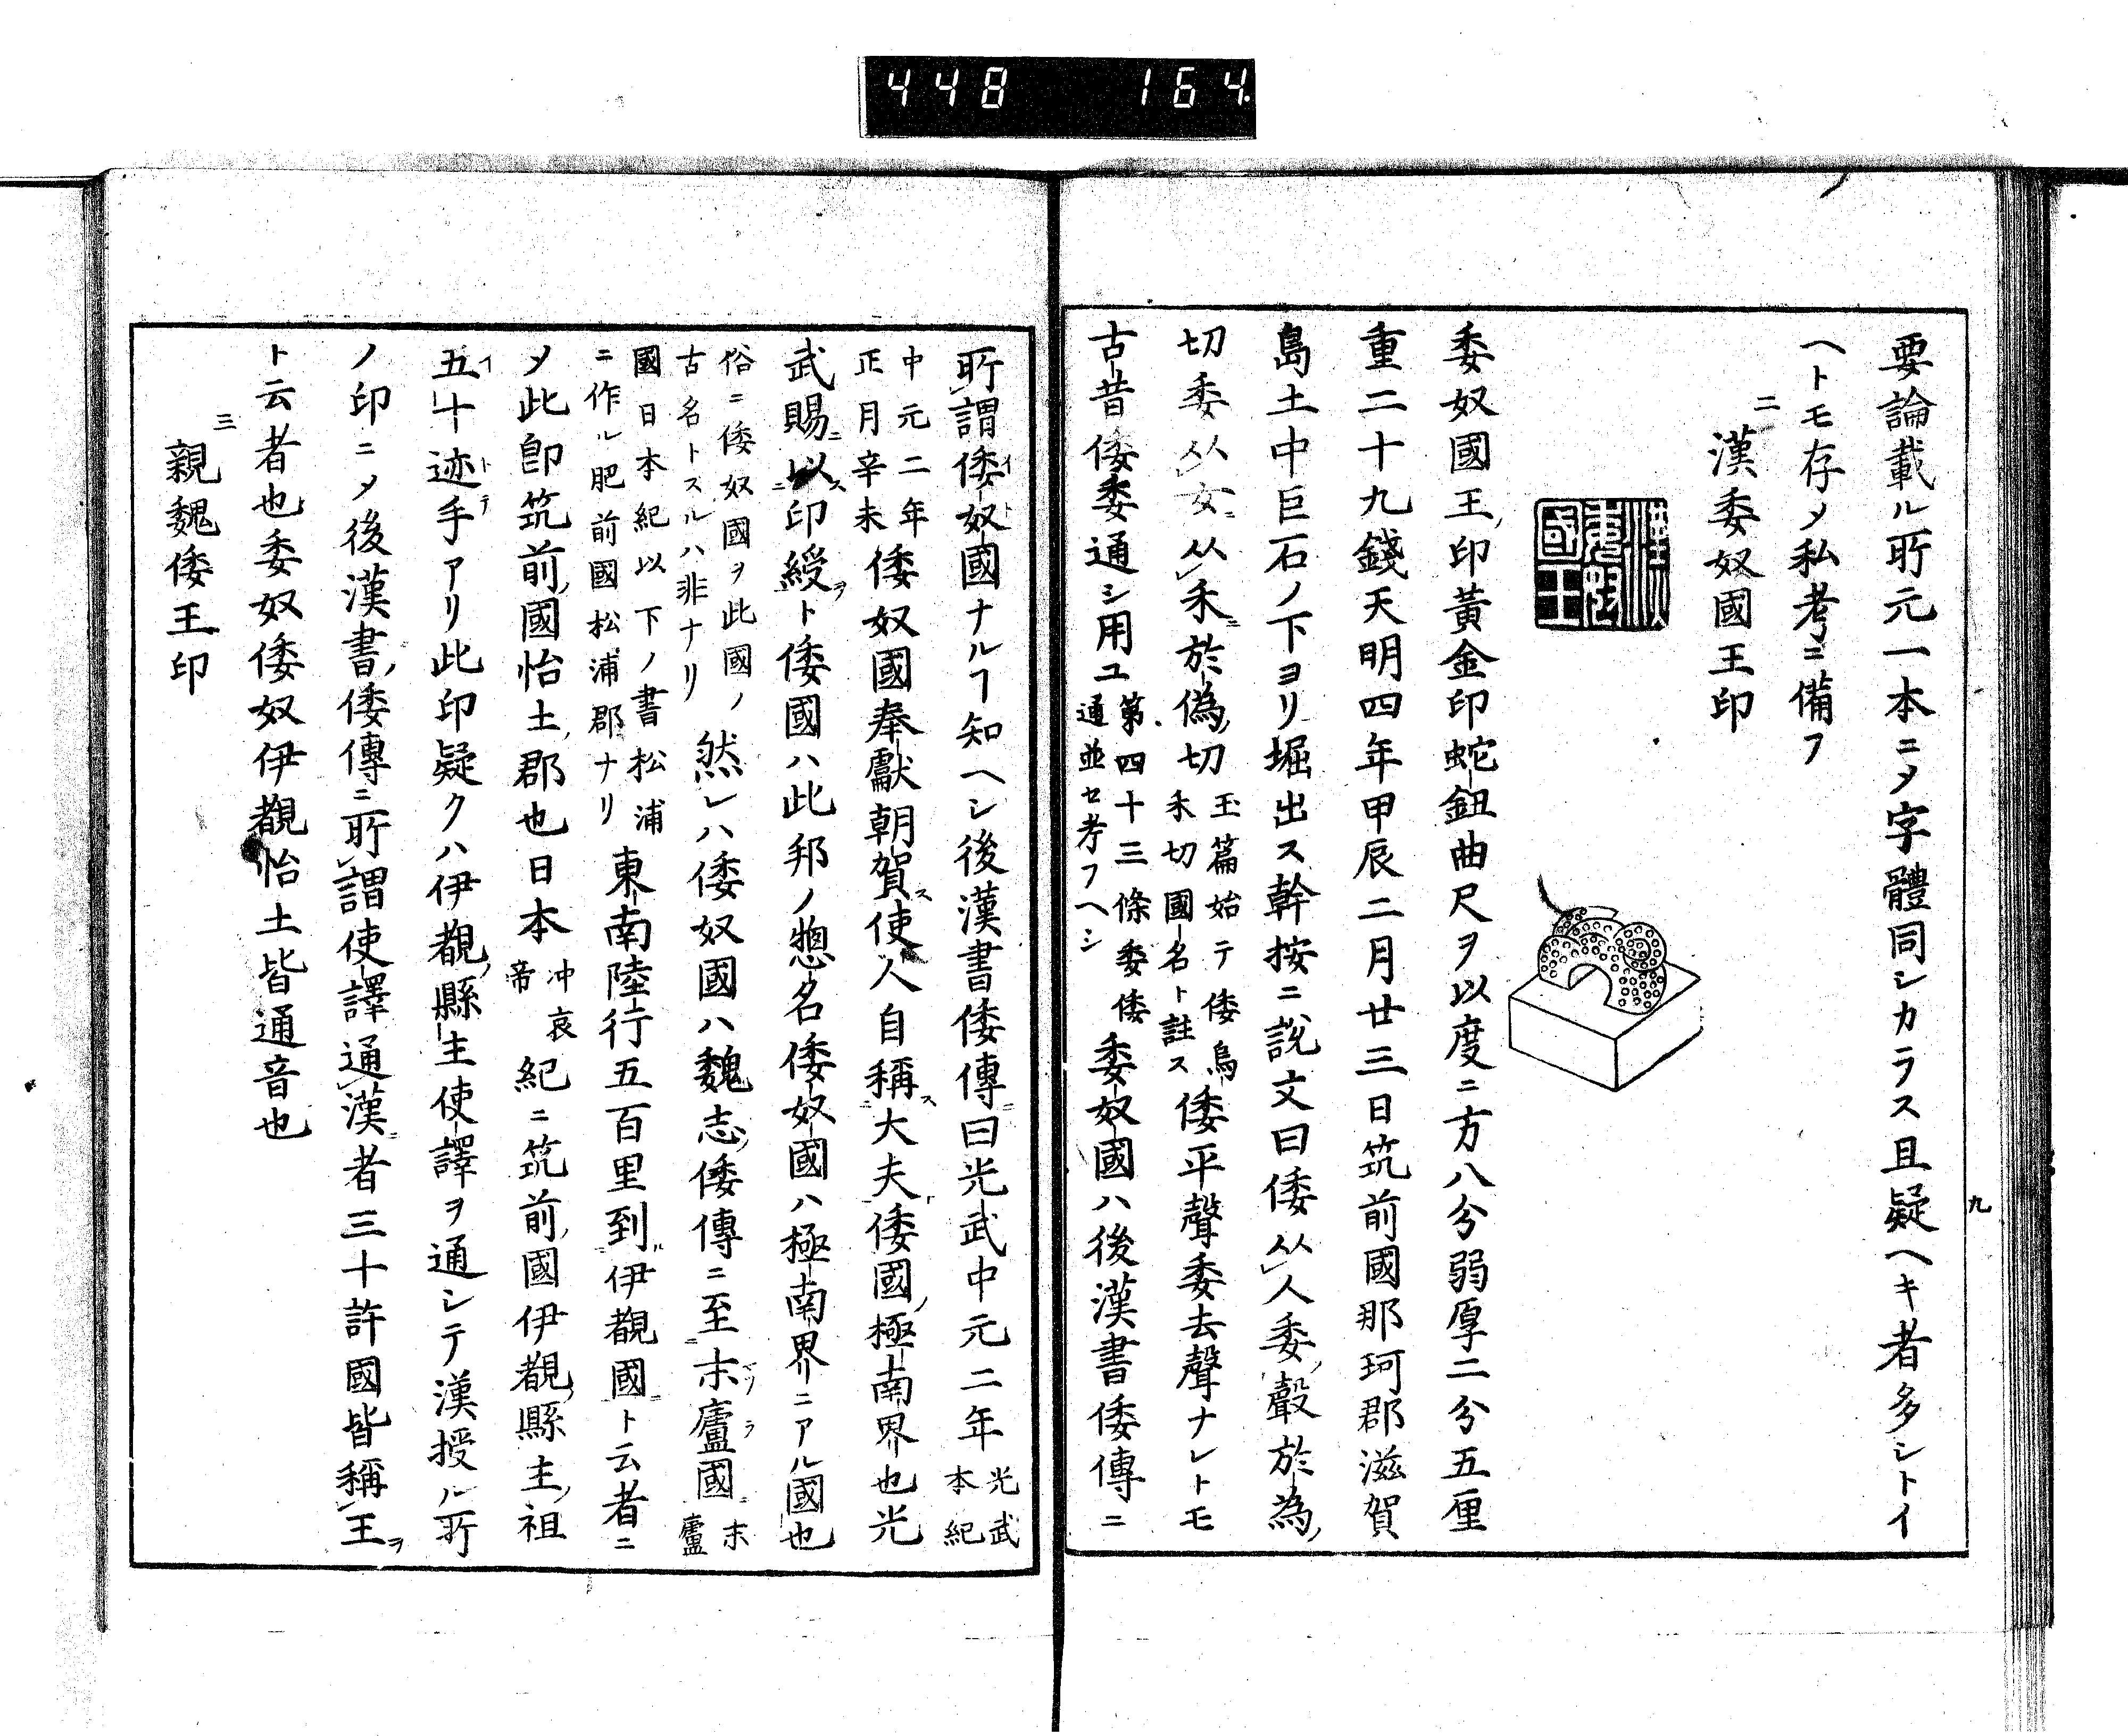 448 164.
要論載ル所元一本ニメ字體同シカラス且疑ヘキ者多シトイ
ヘトモ存メ私考ニ備フ
九
二
漢委奴國王印
漢委奴國王
委奴國王印黃金印蛇鈕曲尺ヲ以度ニ方八分弱厚二分五厘
重二十九錢天明四年甲辰二月廿三日筑前國那珂郡滋賀
島土中巨石ノ下ヨリ堀出ス幹按ニ說文曰倭从人委聲於為
切委从女从禾於偽切
玉篇始テ倭烏
禾切國名ト註ス
倭平聲委去聲ナレトモ
古昔倭委通シ用ユ
第四十三條委倭
通並セ考フヘシ
委奴國ハ後漢書倭傳ニ
所謂倭奴國ナルヿ知ヘシ後漢書倭傳曰光武中元二年
光武
本紀
中元二年
正月辛未
倭奴國奉獻朝賀使人自稱大夫倭國極南界也光
武賜以印綬ト倭國ハ此邦ノ惣名倭奴國ハ極南界ニアル國也
俗ニ倭奴國ヲ此國ノ
古名トスルハ非ナリ
然レハ倭奴國ハ魏志倭傳ニ至末廬國
末
廬
國日本紀以下ノ書松浦
ニ作ル肥前國松浦郡ナリ
東南陸行五百里到伊覩國ト云者ニ
メ此卽筑前國怡土郡也日本
仲哀
帝
紀ニ筑前國伊覩縣主祖
五十迹手アリ此印疑クハ伊覩縣主使譯ヲ通シテ漢授ル所
ノ印ニメ後漢書倭傳ニ所謂使譯通漢者三十許國皆稱王
ト云者也委奴倭奴伊覩怡土皆通音也
三
親魏倭王印